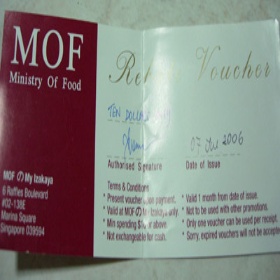 MOF
Ministry Of Food
MOF の My Izakaya
6 Raffles Boulevard
#02-138E
Marina Square
Singapore 039594
Voucher
TEN DOLLARS
Authorised Signature
07 Dec 2006
Date of Issue
Terms & Conditions
* Present voucher upon payment.
* Valid at MOF の My Izakaya only.
* Min spending $ above
* Not exchangeable for cash.
* Valid 1 month from date of issue.
* Not to be used with other promotions.
* Only one voucher can be used per receipt.
* Sorry, expired vouchers will not be accepted